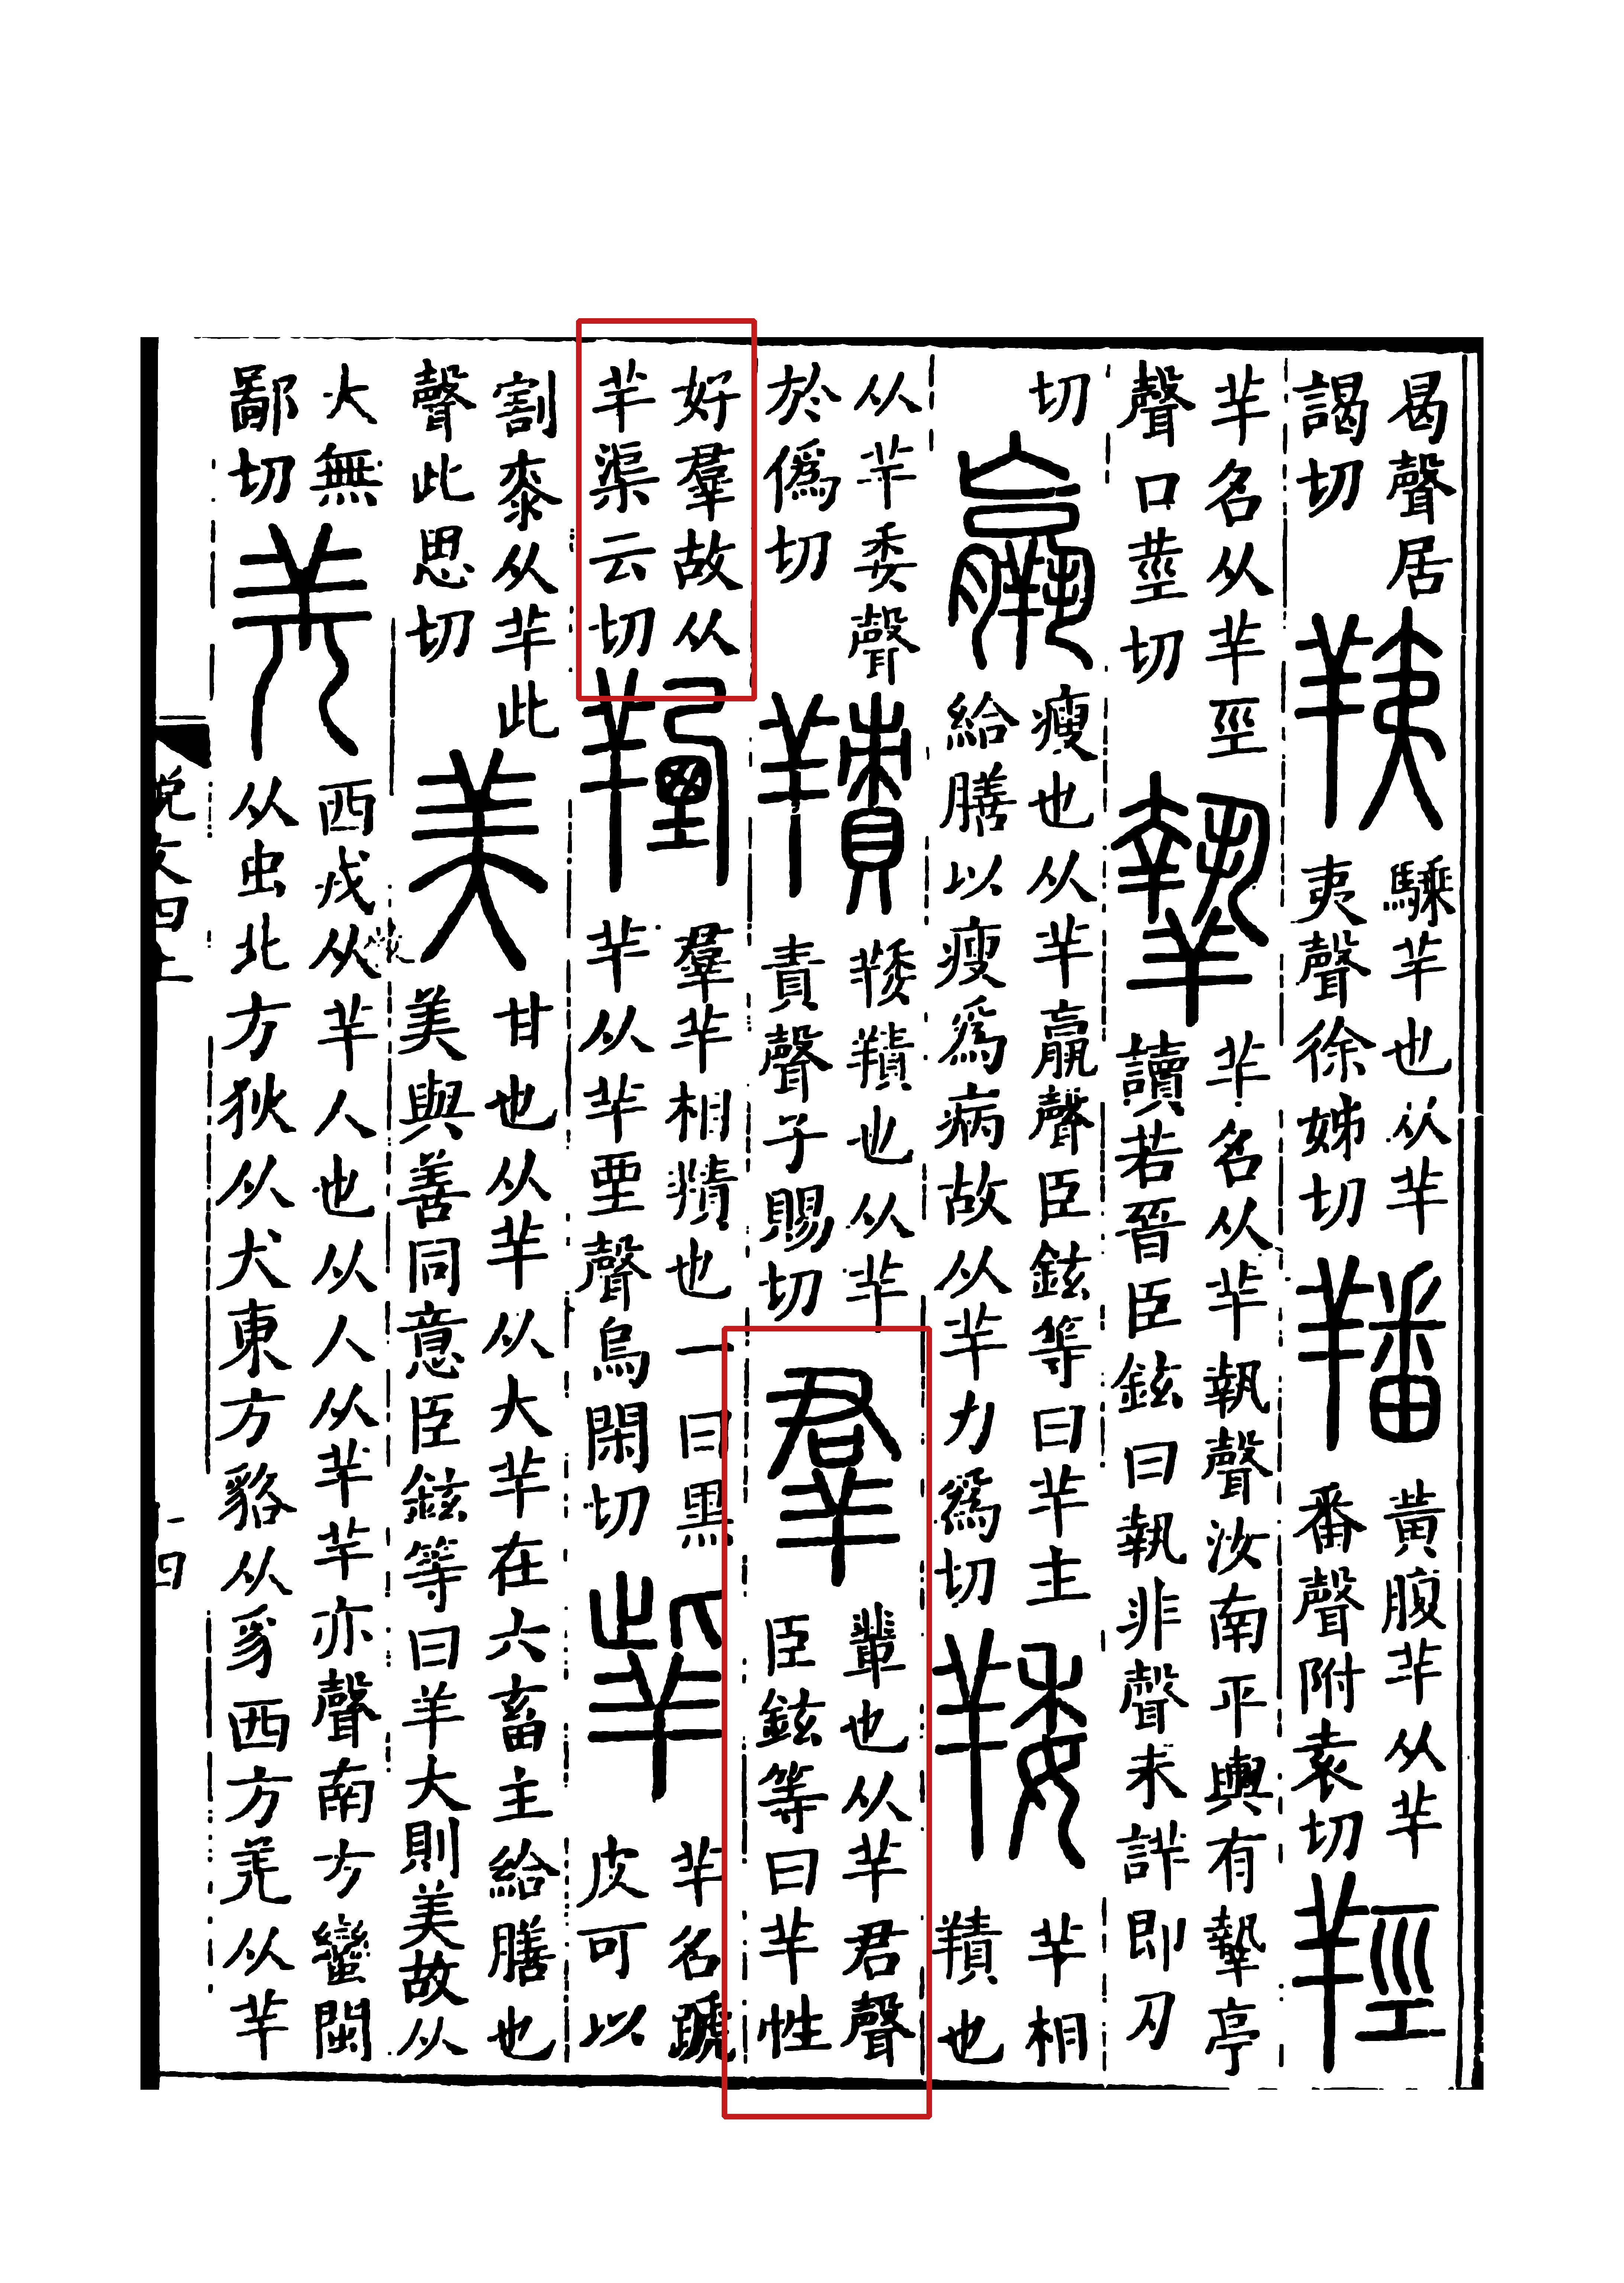 曷聲居
謁切
羠
騬羊也从羊
夷聲徐姊切
羳
黃腹羊从羊
番聲附袁切
羥
羊名从羊巠
聲口莖切
𦎷
羊名从羊執聲汝南平輿有𦎷亭
讀若晉臣鉉曰執非聲未詳即刃
切
羸
瘦也从羊𣎆聲臣鉉等曰羊主
給膳以瘦爲病故从羊力爲切
䍴
羊相
䍵也
从羊委聲
於僞切
䍵
䍴䍵也从羊
責聲子賜切
羣
輩也从羊君聲
臣鉉等曰羊性
好羣故从
羊渠云切
羣羊相䍵也一曰黑
羊从羊垔聲烏閑切
羊名蹏
皮可以
割桼从羊此
聲此思切
美
甘也从羊从大羊在六畜主給膳也
美與善同意臣鉉等曰羊大則美故从
大無
鄙切
羌
西戎从羊人也从人从羊羊亦聲南方蠻閩
从虫北方狄从犬東方貉从豸西方羌从羊
說文四上
十四